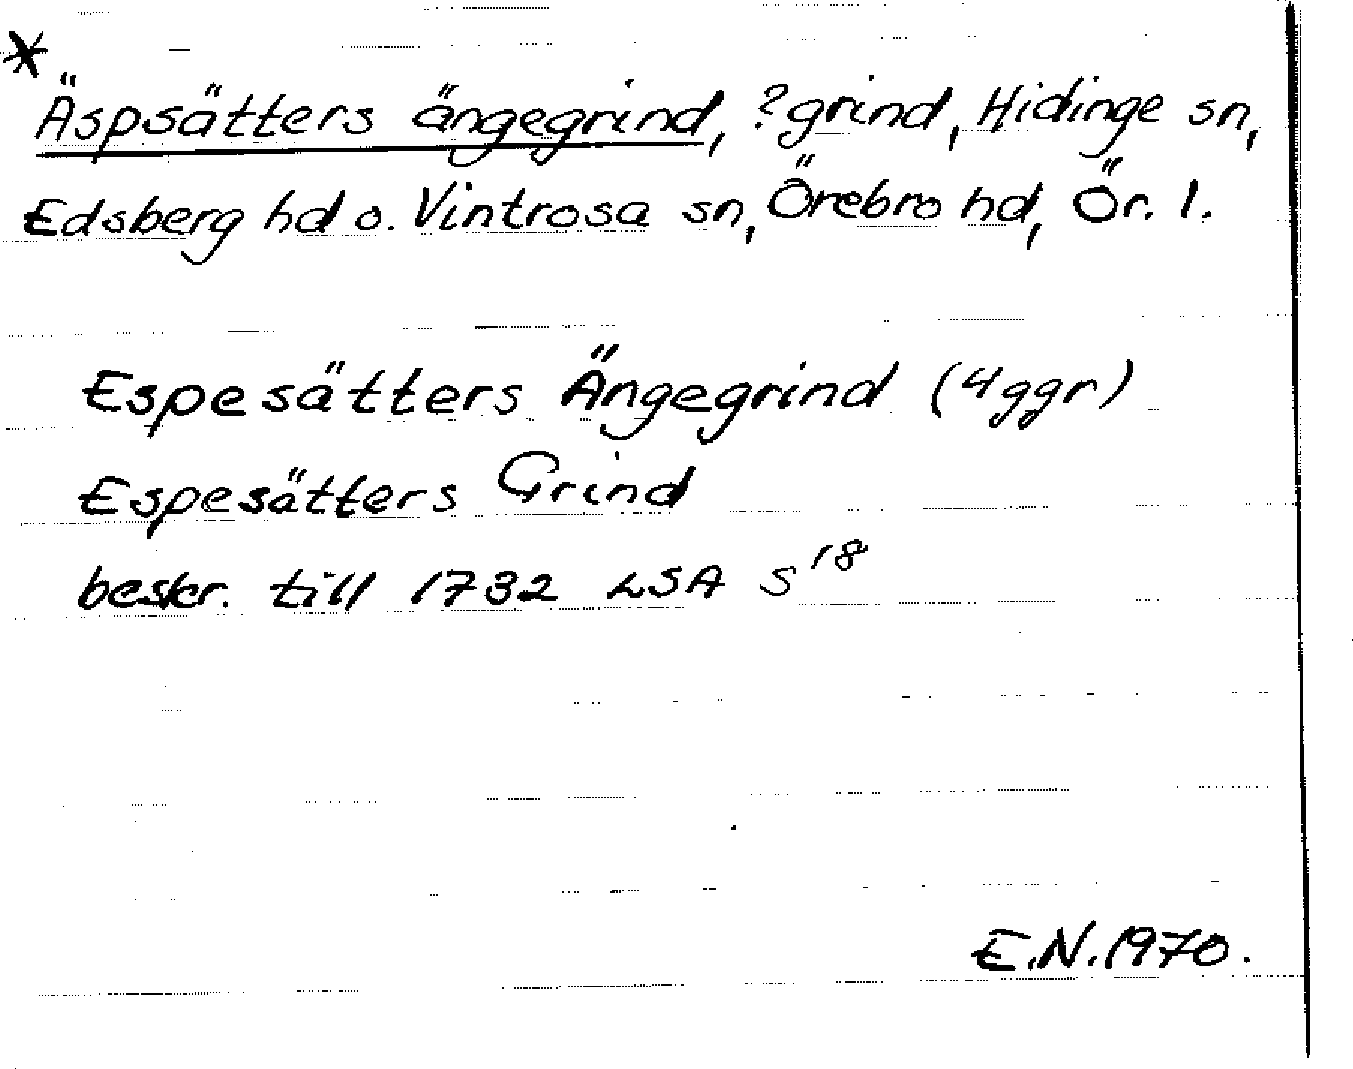 *
Äspsätters ängegrind, ?grind, Hidinge sn,
Edsberg hd o. Vintrosa sn, Örebro hd, Ör. l.
Espesätters Ängegrind (4ggr)
Espesätters Grind
beskr. till 1732 LSA S 18
E.N. 1970.